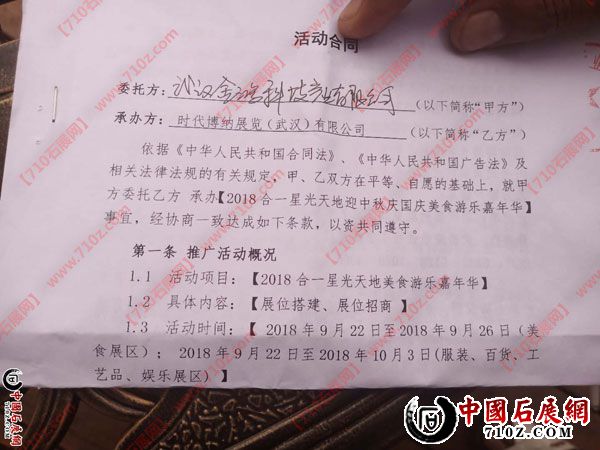 活动合同
委托方：武汉金 科技 有限公司（以下简称“甲方”）
承办方：时代博纳展览（武汉）有限公司（以下简称“乙方”）
依据《中华人民共和国合同法》、《中华人民共和国广告法》及
相关法律法规的有关规定，甲、乙双方在平等、自愿的基础上，就甲
方委托乙方 承办【2018合一星光天地迎中秋庆国庆美食游乐嘉年华】
事宜，经协商一致达成如下条款，以资共同遵守。
第一条 推广活动概况
1.1 活动项目：【2018合一星光天地美食游乐嘉年华】
1.2 具体内容：【展位搭建、展位招商 】
1.3 活动时间：【 2018年9月22日至2018年9月26日(美
食展区)； 2018年9月22日至2018年10月3日(服装、百货、工
艺品、娱乐展区) 】
【710石展网】
www.710z.com
中國石展網
710Z.COM